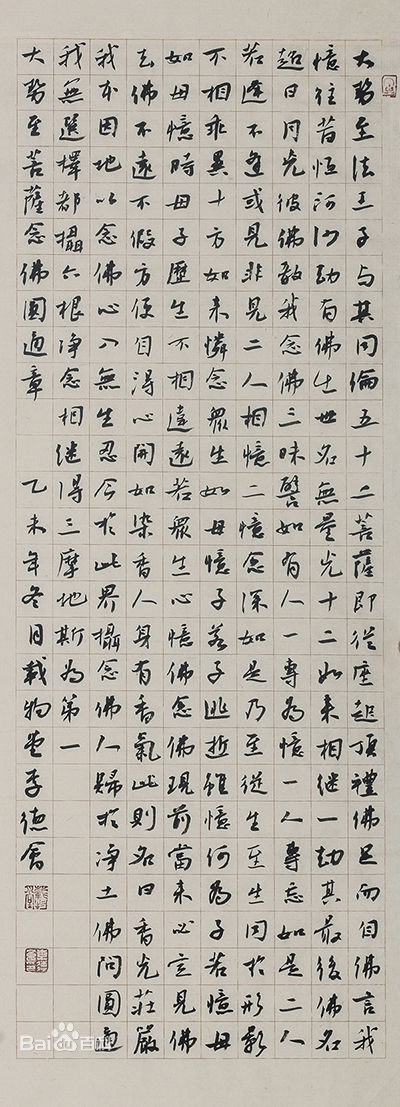 大勢至法王子与其同倫五十二菩薩即從座起頂禮佛足而白佛言我
憶往昔恒河沙劫有佛出世名無量光十二如来相继一劫其最後佛名
超日月光彼佛教我念佛三昧譬如有人一專為憶一人專忘如是二人
若逢不逢或見非見二人相憶二憶念深如是乃至從生至生同於形影
不相乖異十方如来憐念衆生如母憶子若子逃逝雖憶何為子若憶母
如母憶時母子歷生不相違遠若衆生心憶佛念佛現前當来必定見佛
去佛不遠不假方便自得心開如染香人身有香氣此則名曰香光莊嚴
我本因地以念佛心入無生忍今於此界攝念佛人歸於净土佛問圓通
我無選擇都攝六根净念相继得三摩地斯為第一
大勢至菩薩念佛圓通章 乙未年冬月載物堂李德會
Bai百科